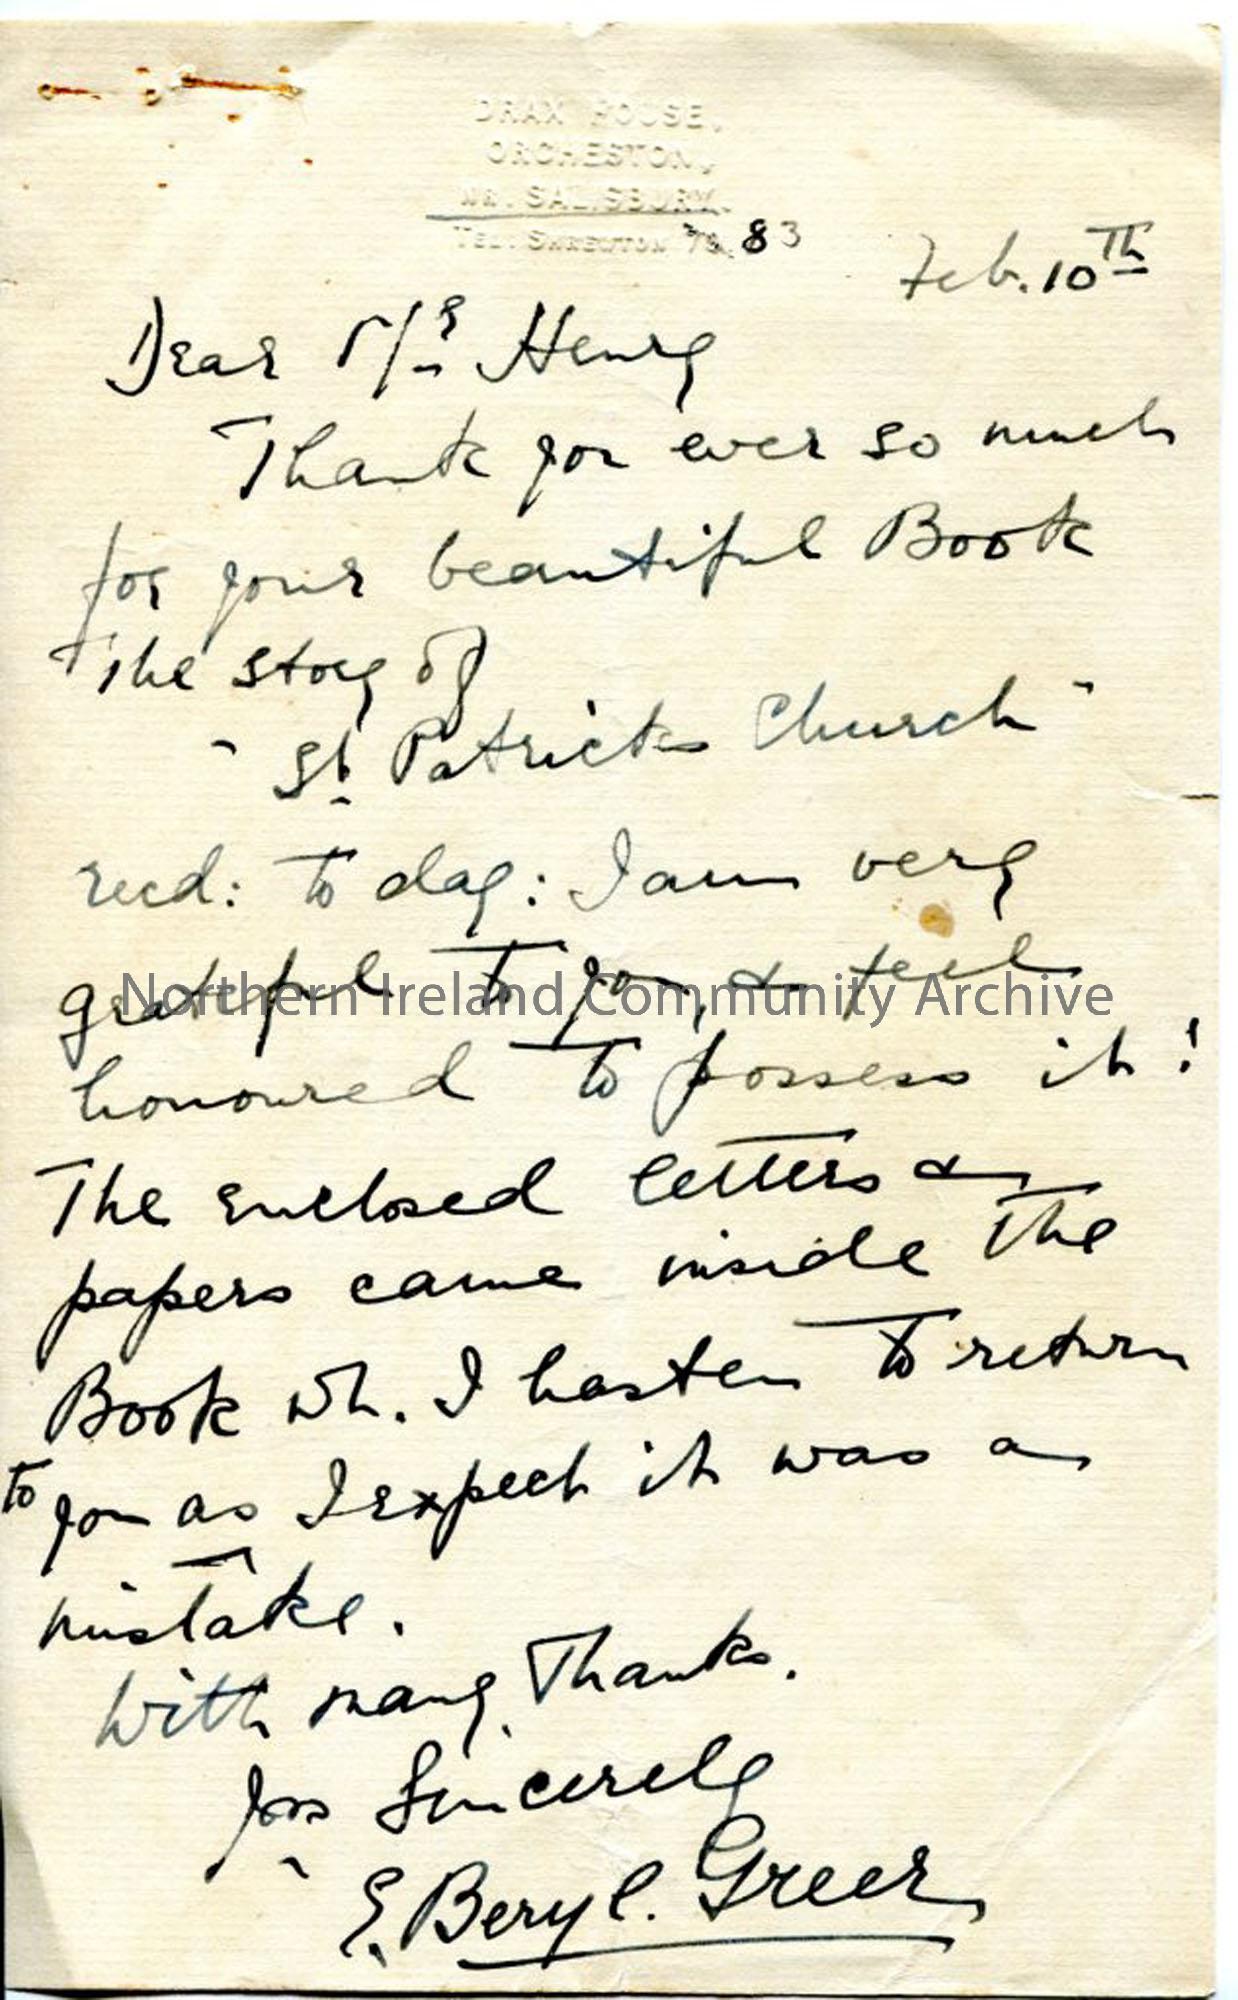 DRAX HOUSE,
ORCHESTON,
NR. SALISBURY.
TEL: SHREWTON 83
Feb. 10th
Dear Mr Henry
Thank you ever so much
for your beautiful Book
"The story of
"St Patricks Church"
recd: to day: I am very
grateful to you, & feel
honoured to possess it!
The enclosed letters &
papers came inside the
Book wh. I hasten to return
to you as I expect it was a
mistake.
With many Thanks.
Yrs Sincerely
E. Beryl. Greer
Northern Ireland Community Archive